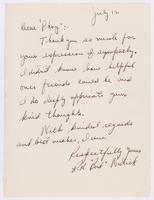 July 12
Dear "Phog":-
Thank you so much for
your expression of sympathy.
I didn't know how helpful
ones friends could be and
I do deeply appreciate your
kind thoughts.
With kindest regards
and best wishes, I am
Respectfully yours
"Bud"